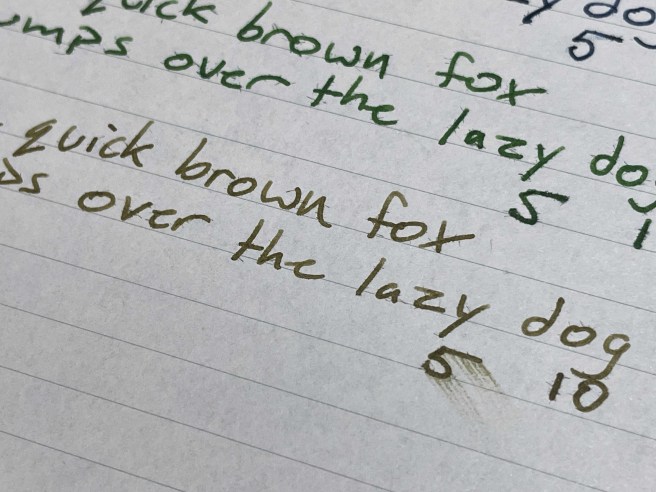 y do
5
quick brown fox
umps over the lazy dog
5 1
quick brown fox
ps over the lazy dog
5 10